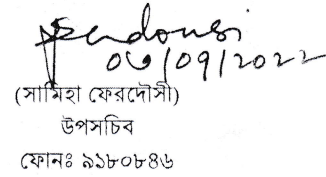 Ferdousi
০৬/09/2022
(সামিহা ফেরদৌসী)
উপসচিব
ফোনঃ ৯১৮০৮৪৬